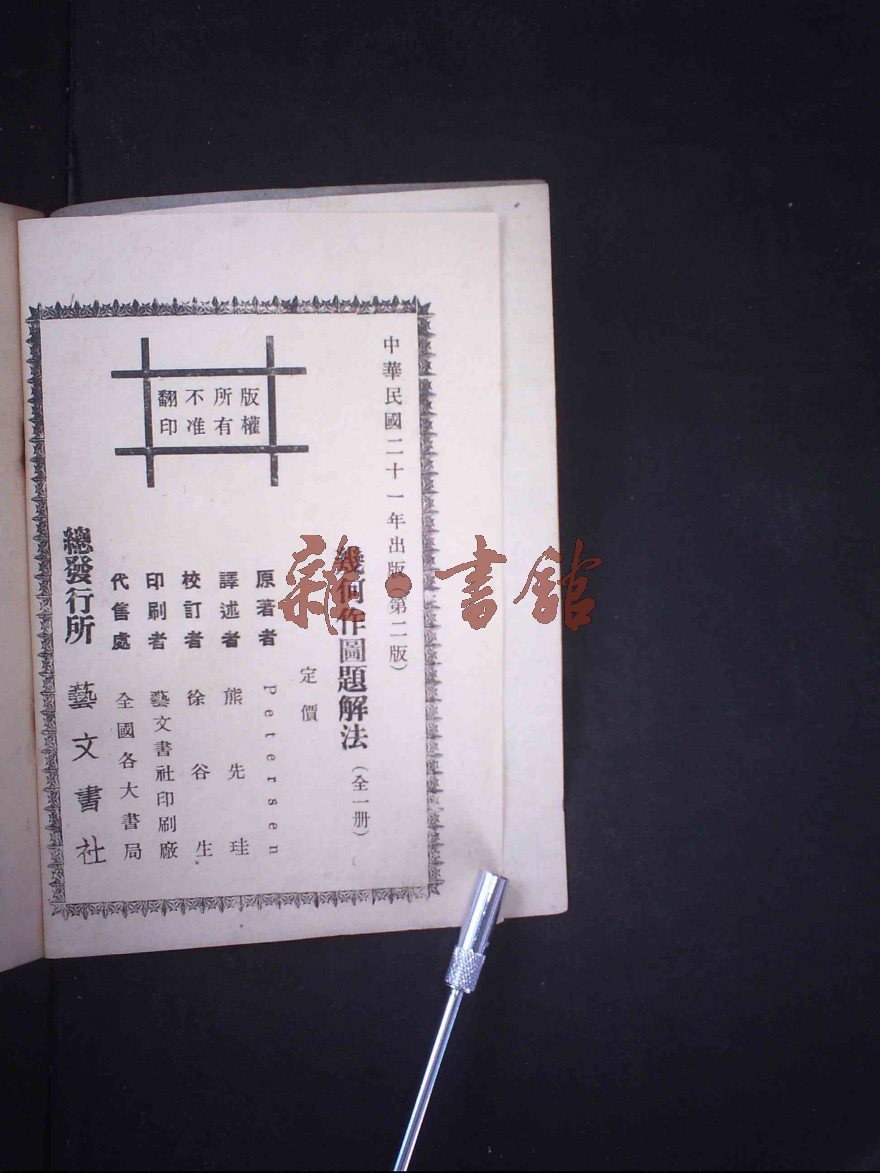 中華民國二十一年出版(第二版)
幾何作圖題解法(全一册)
定價
原著者 Petersen
譯述者 熊先珪
校訂者 徐谷生
印刷者 藝文書社印刷廠
代售處 全國各大書局
總發行所 藝文書社
版權
所有
不准
翻印
雜·書館